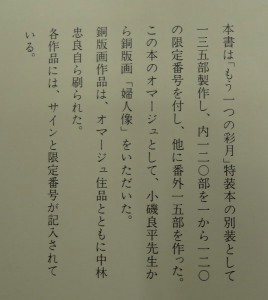 本書は「もう一つの彩月」特装本の別装として
一三五部製作し、内一二〇部を一から一二〇
の限定番号を付し、他に番外一五部を作った。
この本のオマージュとして、小磯良平先生か
ら銅版画「婦人像」をいただいた。
銅版画作品は、オマージュ佳品とともに中林
忠良自ら刷られた。
各作品には、サインと限定番号が記入されて
いる。